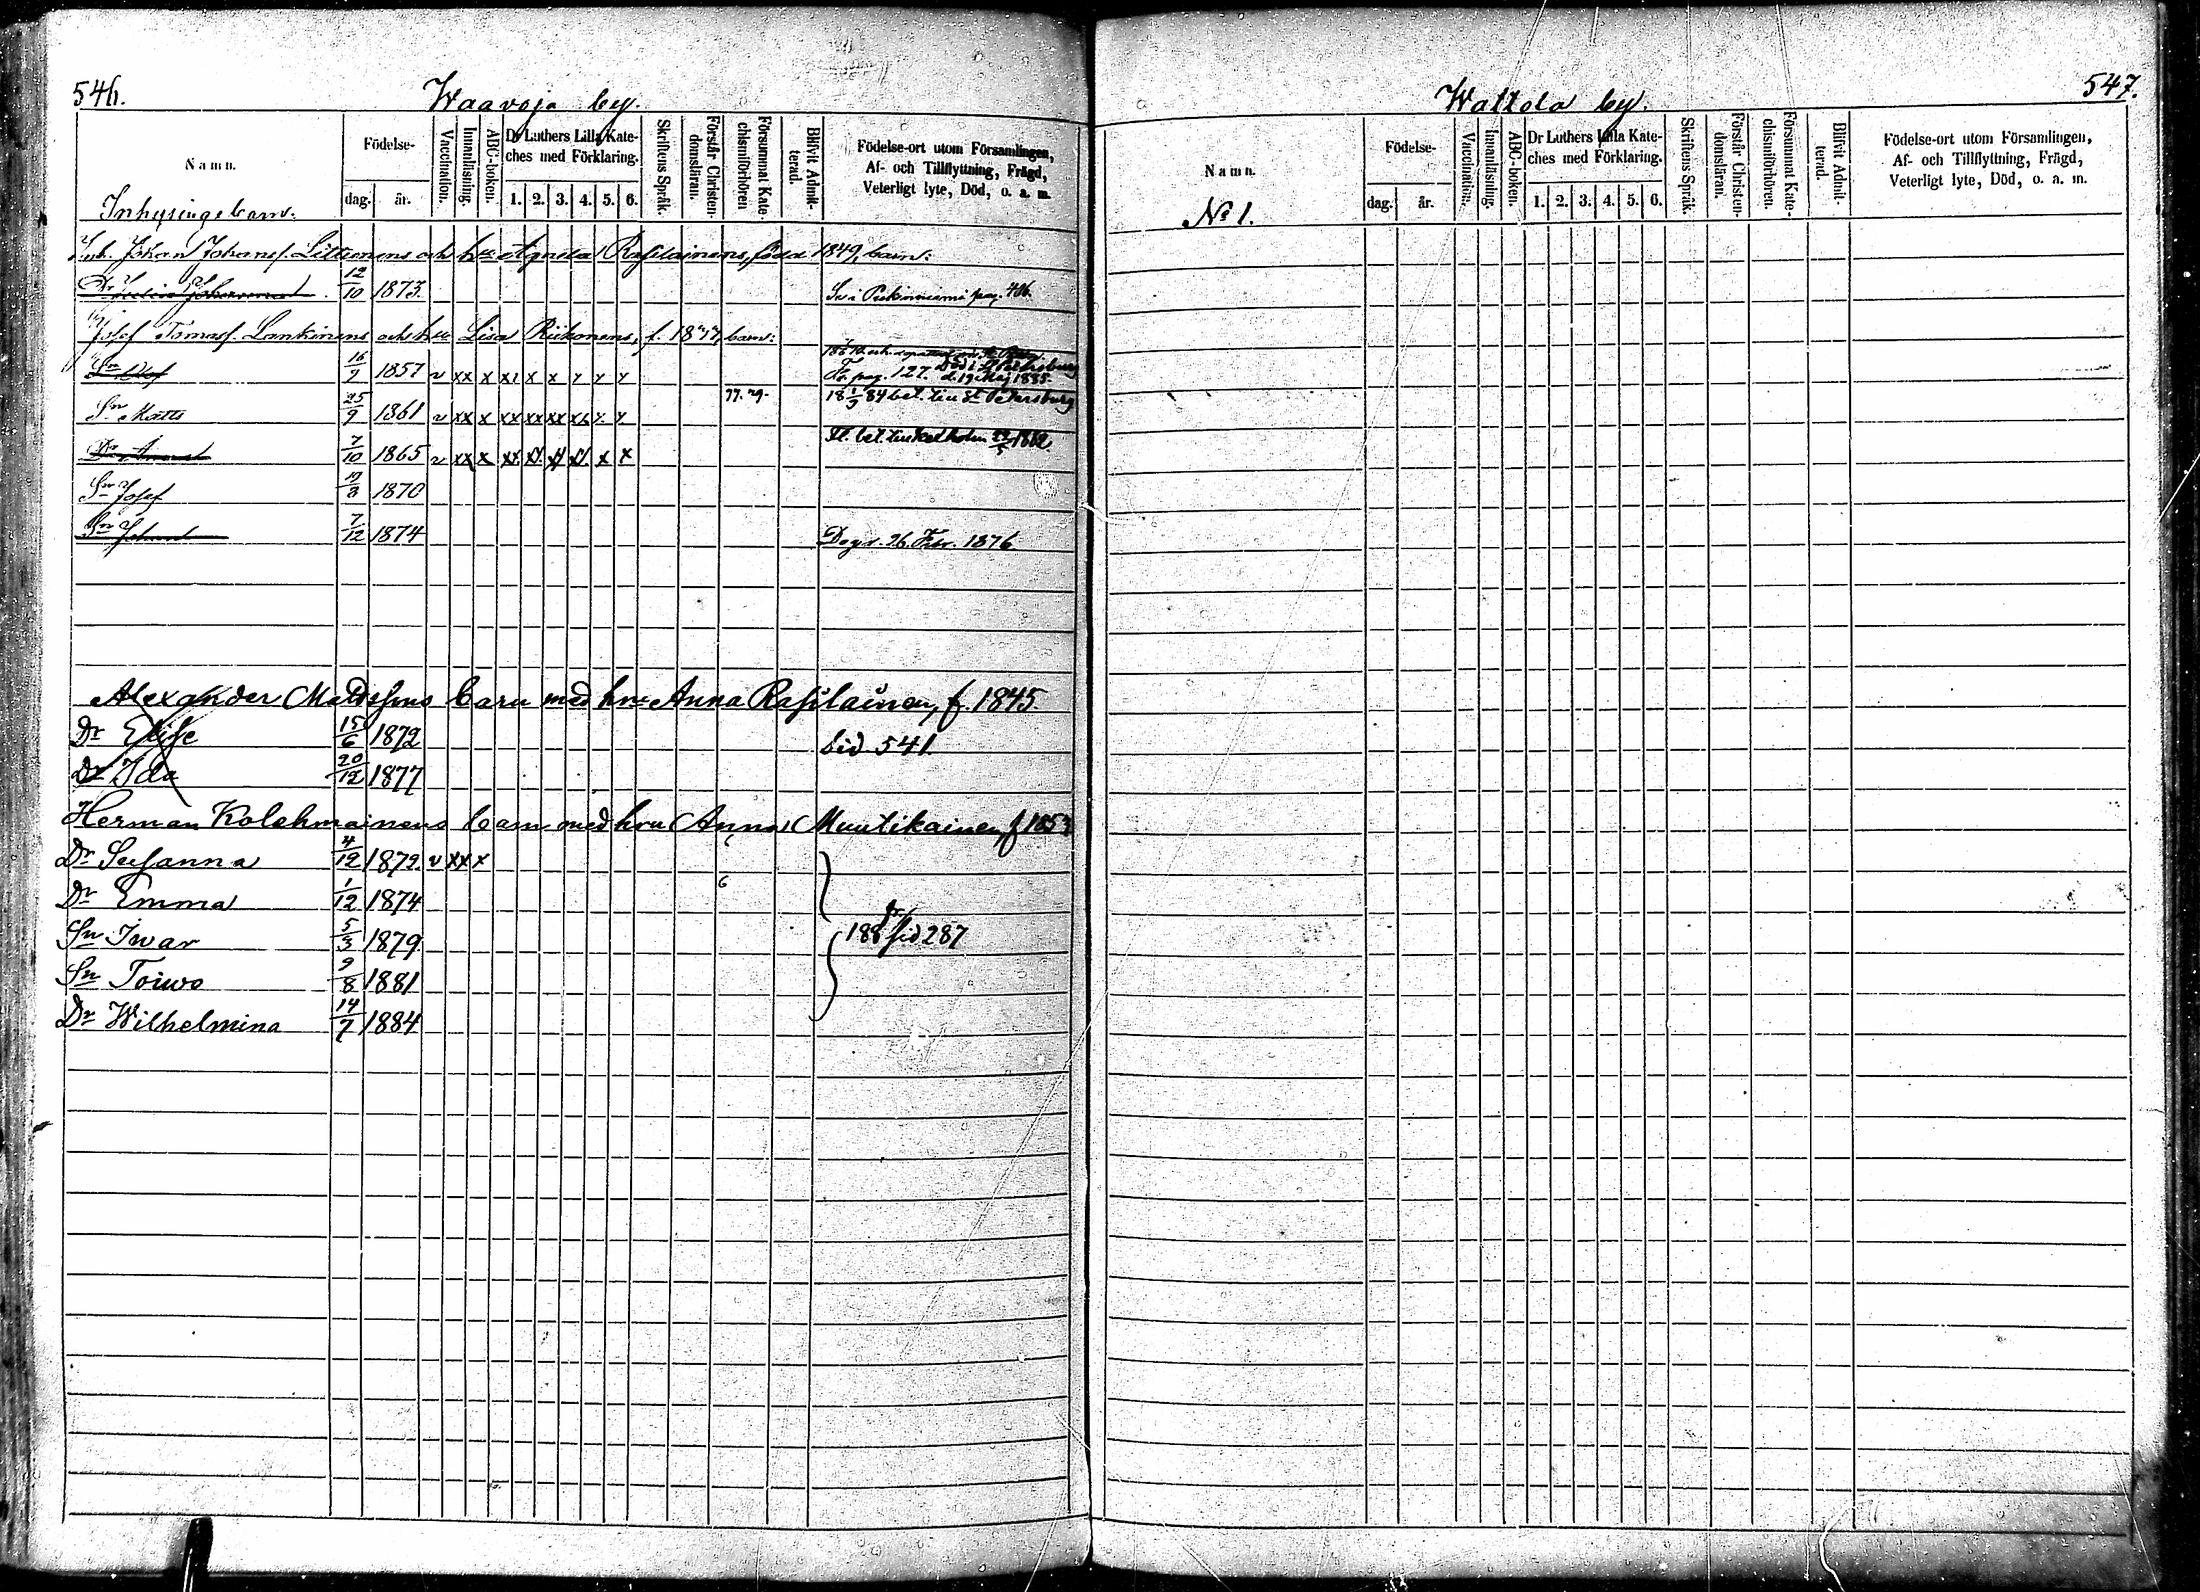 546.
Waavoja by.
Namn.
Födelse-
dag.
år.
Vaccination.
Innanläsning.
ABC-boken.
Dr Luthers Lilla Kate-
ches med Förklaring.
1. 2. 3. 4. 5. 6.
Skriftens Språk.
Förstår Christen-
domsläran.
Försummat Kate-
chismiförhören
Blifvit Admit-
terad.
Födelse-ort utom Församlingen,
Af- och Tillflyttning, Frägd,
Veterligt lyte, Död, o. a. m.
Inhysingebarn.
Inh. Johan Johanss. och hu Agneta född 1849, barn:
12/10 1873. pag. 416.
Josef Tomass. Lankinens och hu Lisa Riikonens, f. barn:
Sn Olof 16/7 1857 v xx x x1 x x pag. 127. Död i St Petersburg
d. 19 Maj 1885.
Sn Matts 25/9 1861 v xx x xx xx xx 77. 79. 84 bet. till St Petersburg
Dr 7/10 1865 v xx x xx x x Fl. bet. till 1882.
Sn Josef 1870
Sn Johan 7/12 1874 Dog d. 26 Febr. 1876
Alexander Mattssons barn med hu Anna Rasilainen, f. 1845.
Dr Elise 15/6 1872 sid 541.
Dr Ida 20/12 1877
Herman Kolehmainens barn med hru Anna Muutikainen, f 1853
Dr Susanna 4/12 1872. v xx x
Dr Emma 1/12 1874 6
Sn Iwar 5/3 1879 188 sid 287
Sn Toiwo 9/8 1881
Dr Wilhelmina 14/7 1884
547.
Wattola by.
Namn.
Födelse-
dag.
år.
Vaccination.
Innanläsning.
ABC-boken.
Dr Luthers Lilla Kate-
ches med Förklaring.
1. 2. 3. 4. 5. 6.
Skriftens Språk.
Förstår Christen-
domsläran.
Försummat Kate-
chismiförhören.
Blifvit Admit-
terad.
Födelse-ort utom Församlingen,
Af- och Tillflyttning, Frägd,
Veterligt lyte, Död, o. a. m.
No 1.